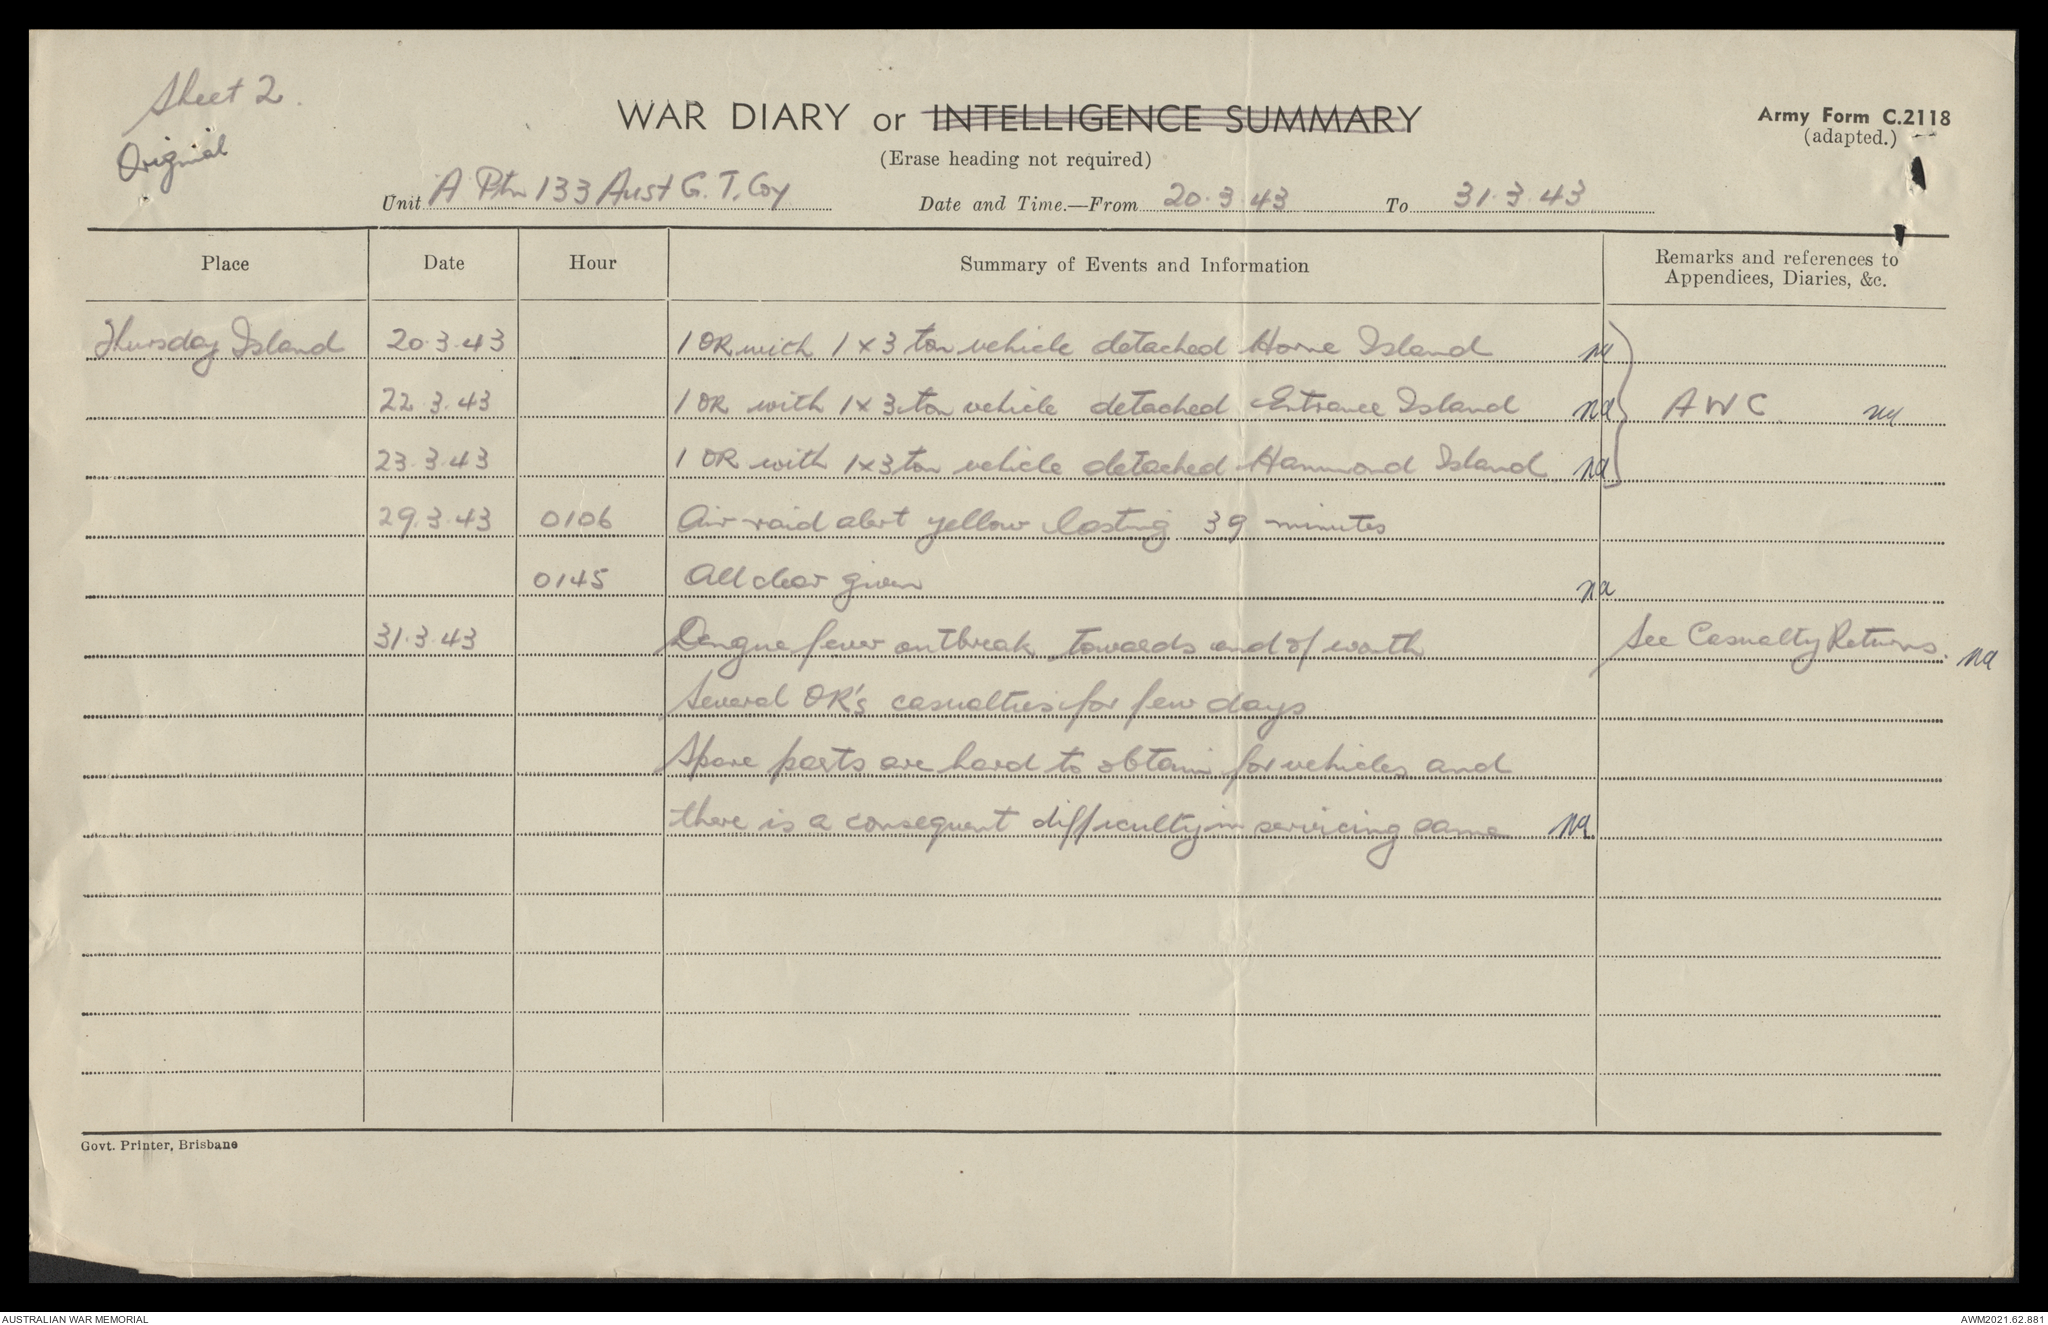 Sheet 2.
Original
WAR DIARY or INTELLIGENCE SUMMARY
(Erase heading not required)
Army Form C.2118
(adapted.)
Unit A Ptn 133 Aust G. T. Coy Date and Time.—From 20.3.43 To 31.3.43
Place Date Hour Summary of Events and Information Remarks and references to
Appendices, Diaries, &c.
Thursday Island 20.3.43 1 OR with 1 x 3 ton vehicle detached Horne Island na
22.3.43 1 OR with 1 x 3 ton vehicle detached Entrance Island na AWC na
23.3.43 1 OR with 1 x 3 ton vehicle detached Hammond Island na
29.3.43 0106 Air raid alert yellow lasting 39 minutes
0145 All clear given na
31.3.43 Dengue fever outbreak towards end of month See Casualty Returns. na
Several OR's casualties for few days
Spare parts are hard to obtain for vehicles and
there is a consequent difficulty in servicing same na
Govt. Printer, Brisbane
AUSTRALIAN WAR MEMORIAL AWM2021.62.881